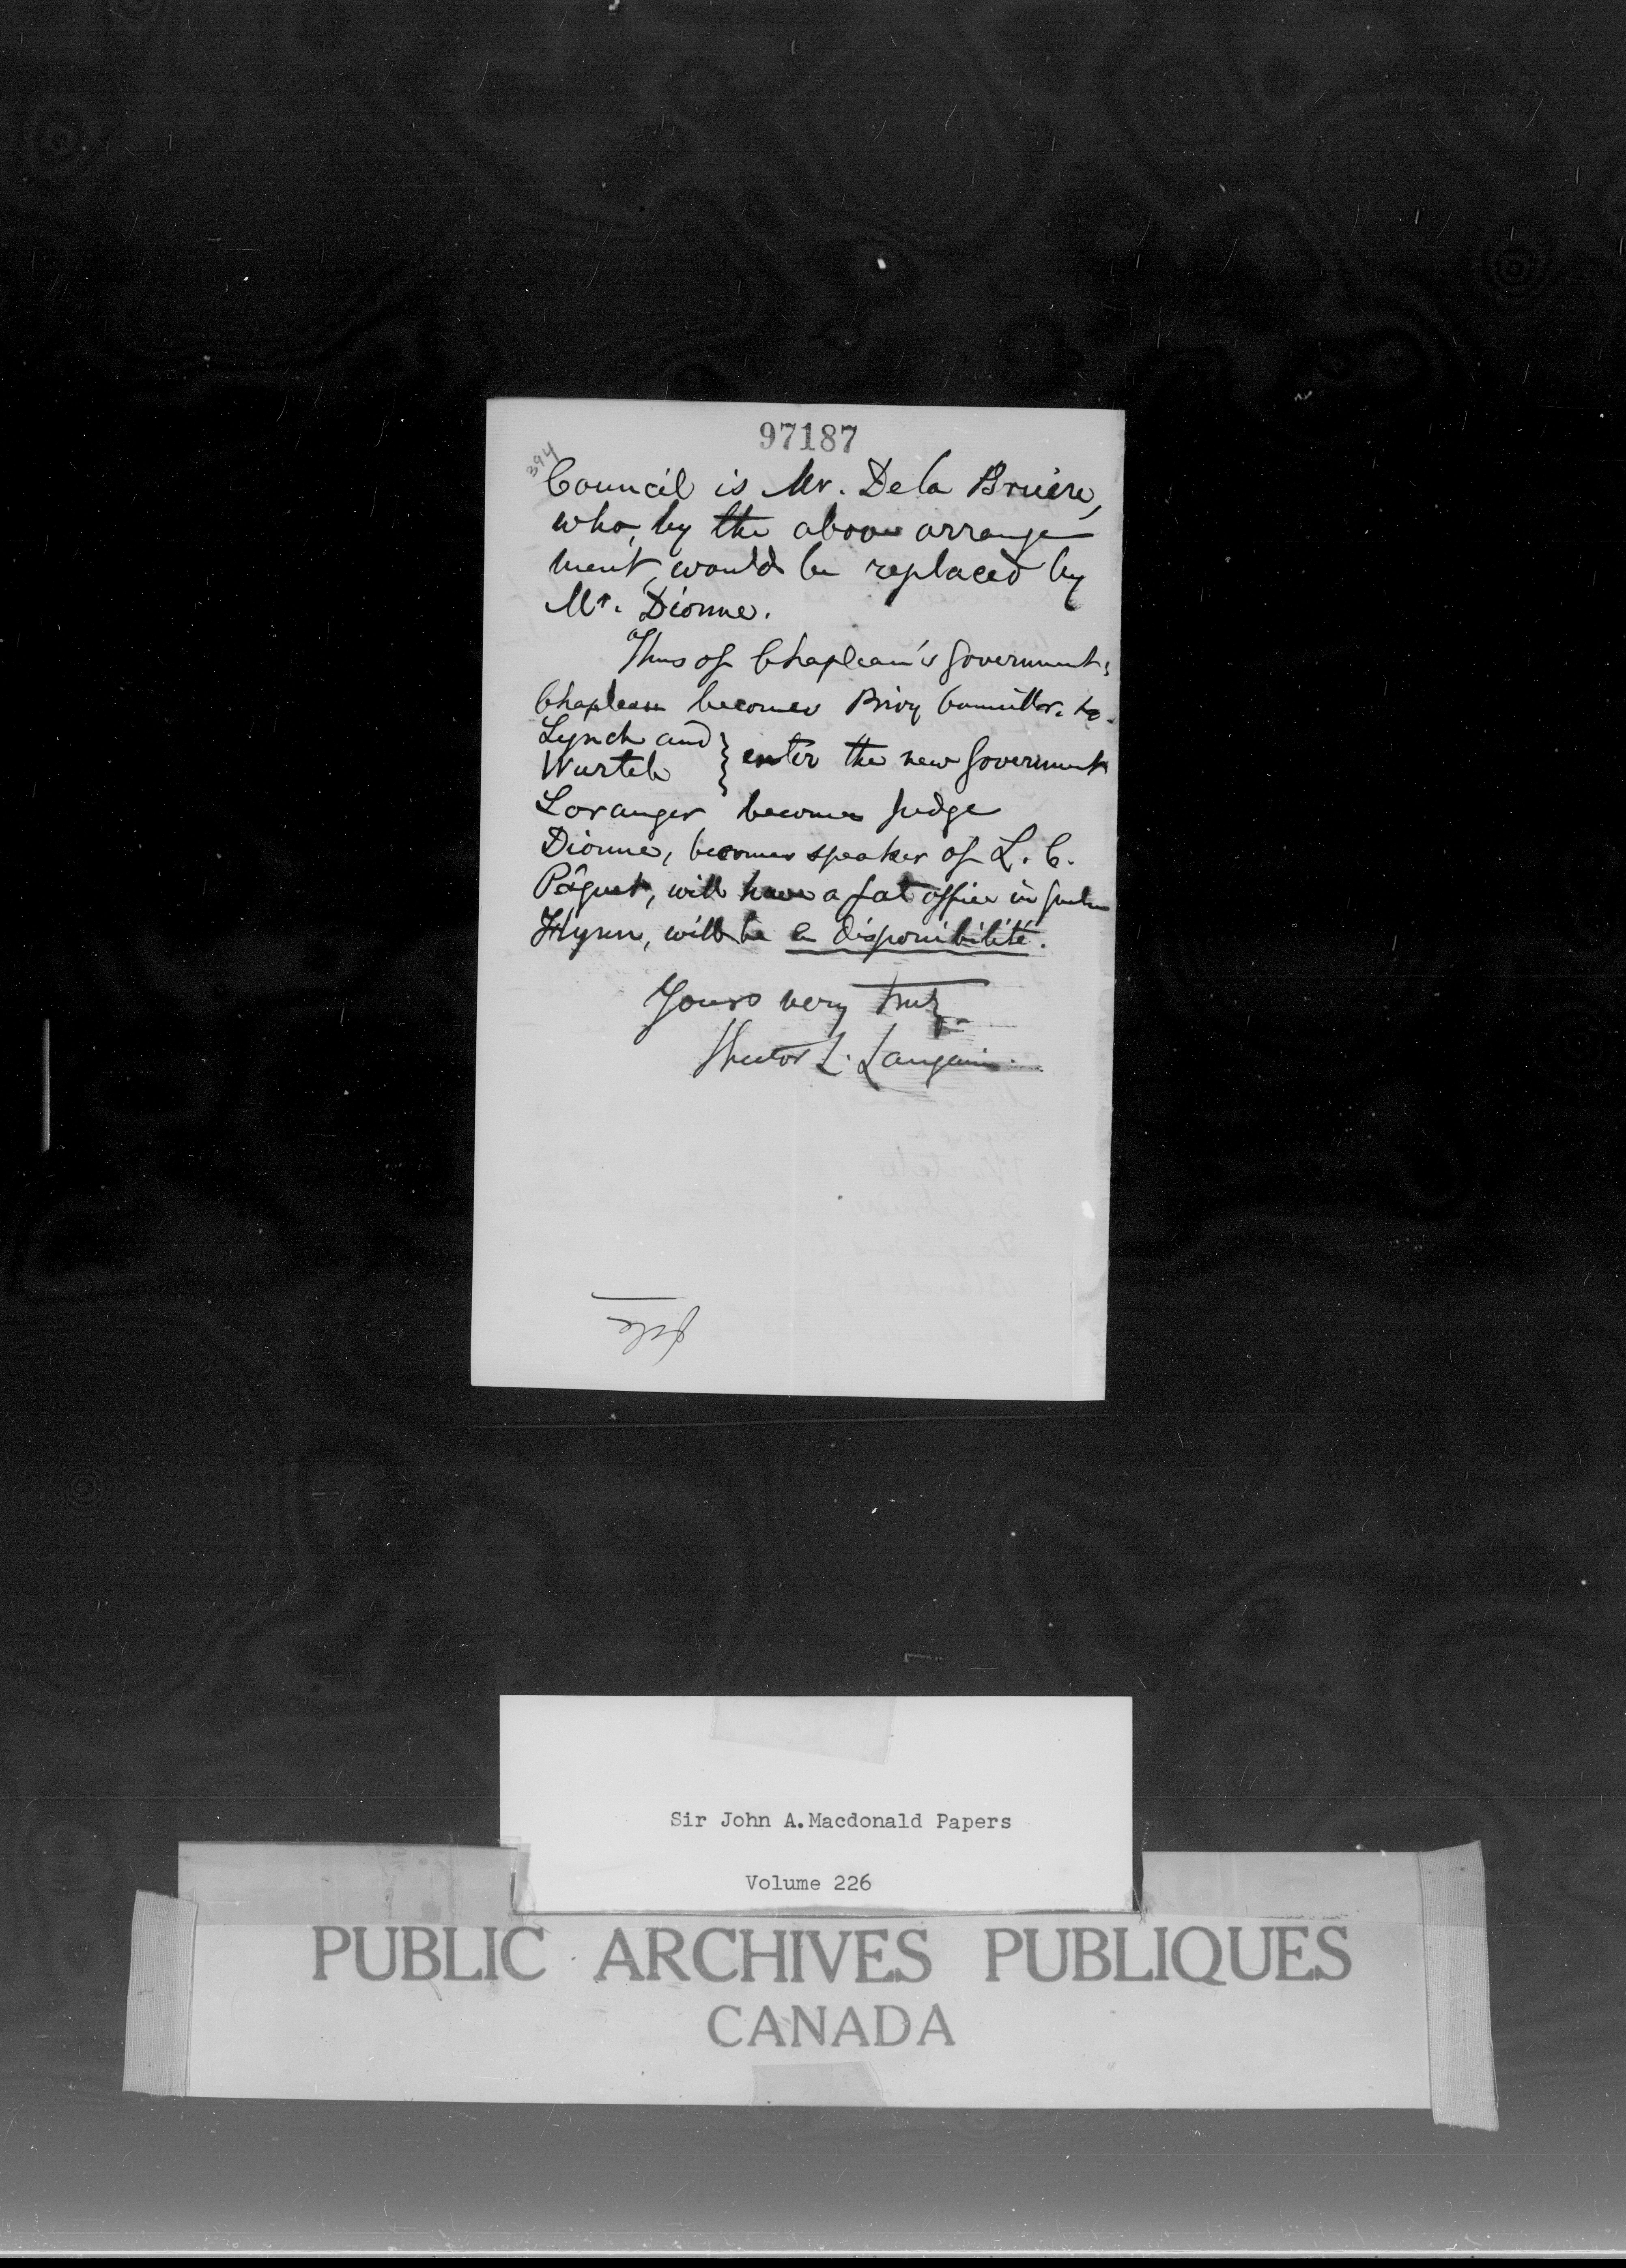 97187
394
Council is Mr. De la Bruère,
who, by the above arrange
ment, would be replaced by
Mr. Dionne.
Thus of Chapleau's Government:
Chapleau becomes Privy Councillor.
Lynch and
Wurtele } enter the new Government
Loranger becomes Judge
Dionne, becomes speaker of L. C.
Pâquet, will have a fat office in
Flynn, will be en disponibilité.
Yours very truly
Hector L. Langevin.
file
Sir John A. Macdonald Papers
Volume 226
PUBLIC ARCHIVES PUBLIQUES
CANADA